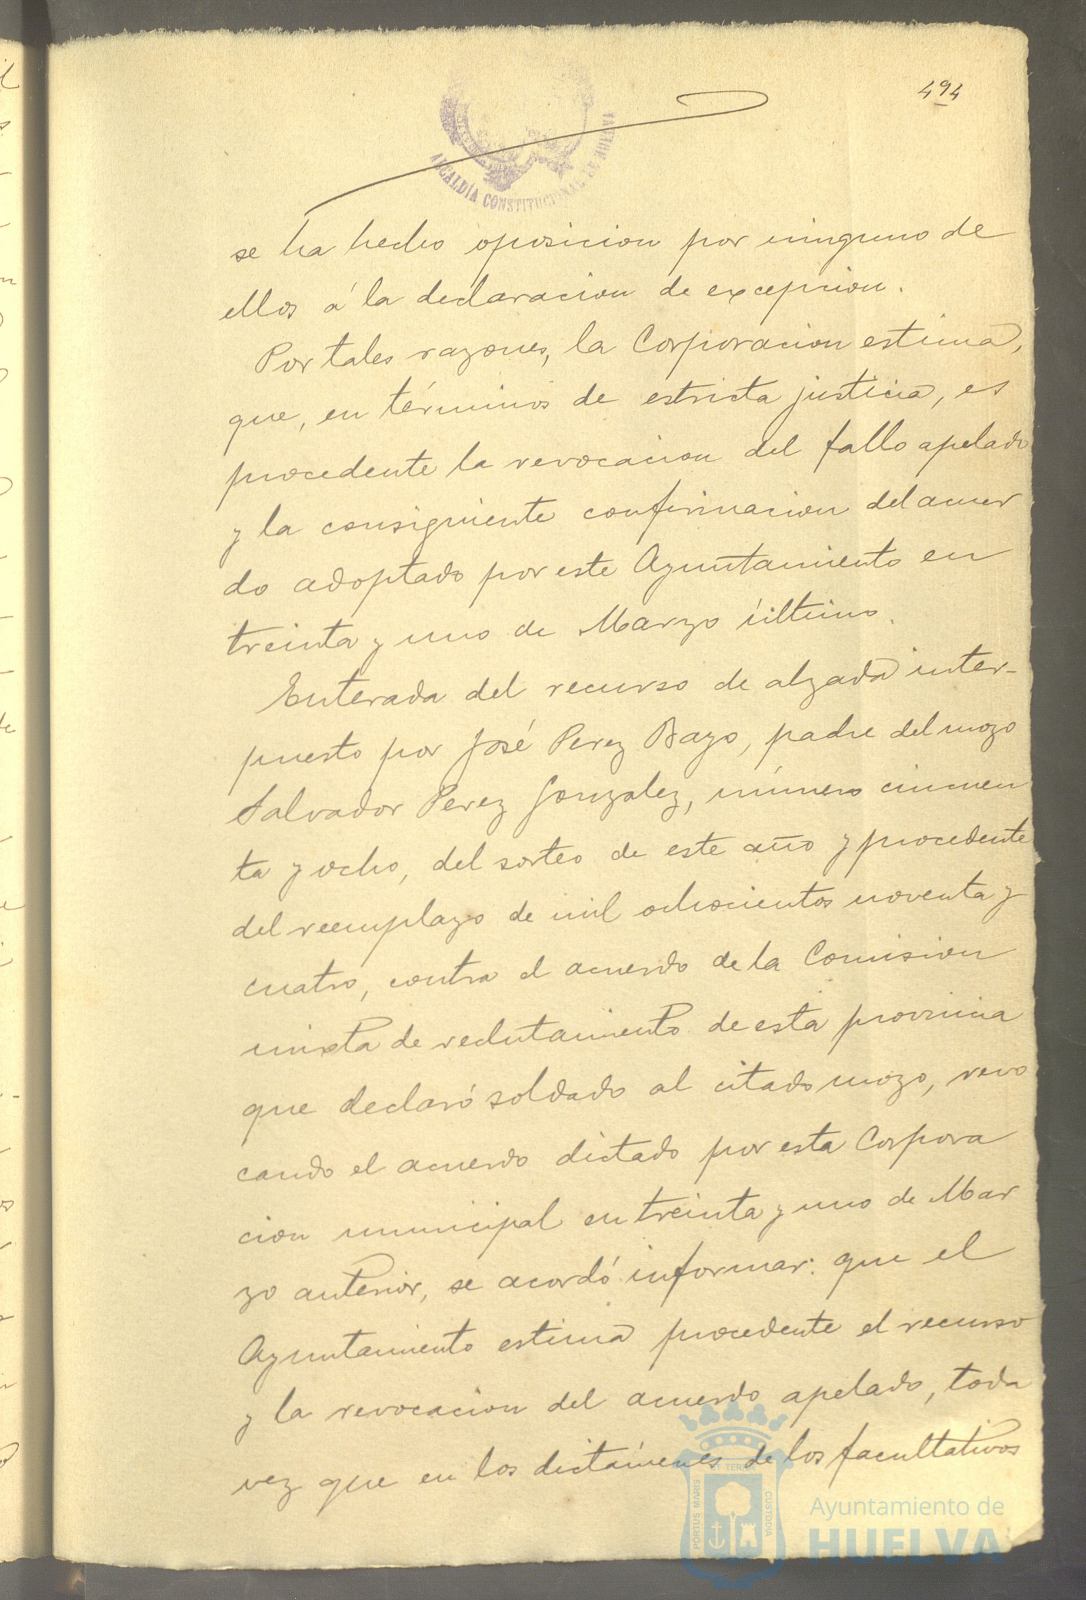 494
ALCALDÍA CONSTITUCIONAL DE HUELVA
se ha hecho oposicion por ninguno de
ellos á la declaracion de excepcion.
Por tales razones, la Corporacion estima,
que, en términos de estricta justicia, es
procedente la revocacion del fallo apelado
y la consiguiente confirmacion del acuer
do adoptado por este Ayuntamiento en
treinta y uno de Marzo último.
Enterada del recurso de alzada inter-
puesto por José Perez Bayo, padre del mozo
Salvador Perez Gonzalez, número cincuen
ta y ocho, del sorteo de este año y procedente
del reemplazo de mil ochocientos noventa y
cuatro, contra el acuerdo de la Comision
mixta de reclutamiento de esta provincia
que declaró soldado al citado mozo, revo
cando el acuerdo dictado por esta Corpora
cion municipal en treinta y uno de Mar
zo anterior, se acordó informar: que el
Ayuntamiento estima procedente el recurso
y la revocacion del acuerdo apelado, toda
vez que en los dictámenes de los facultativos
PORTUS MARIS
CUSTODIA
Ayuntamiento de
HUELVA